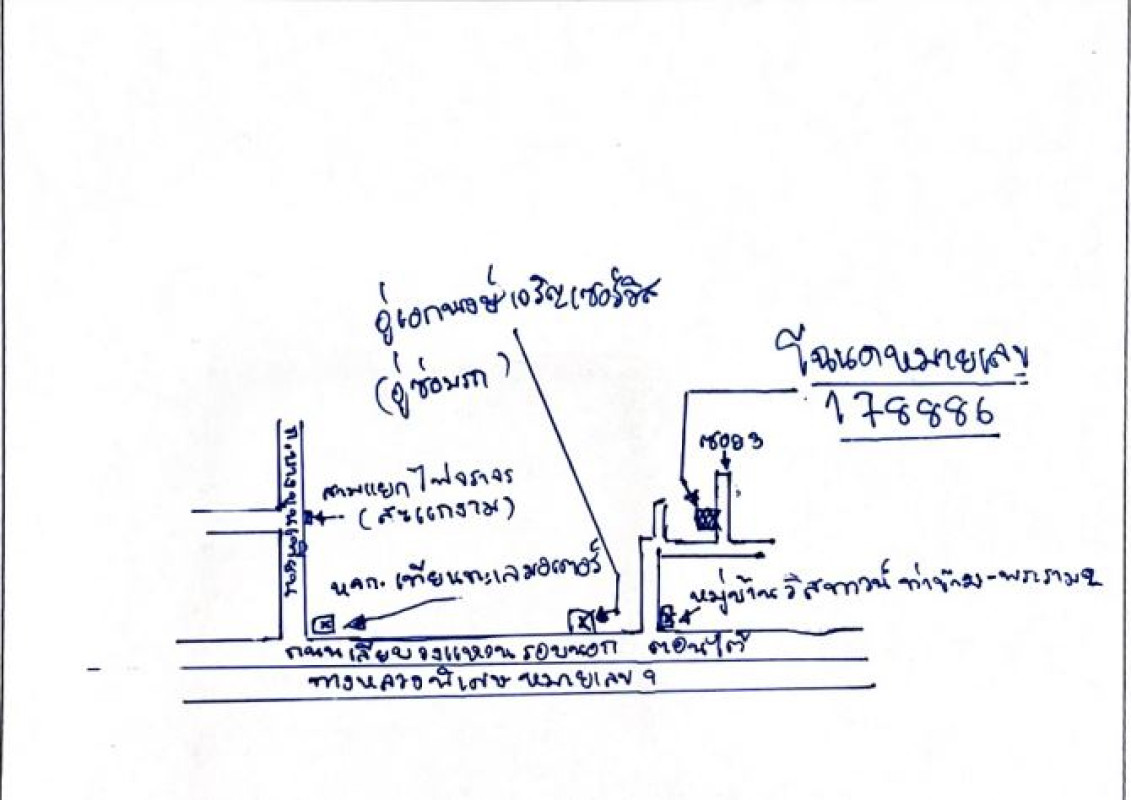 อู่เอกพงษ์เจริญเซอร์วิส
(อู่ซ่อมรถ)
โฉนดหมายเลข
178886
ซอย 3
ถ.บางขุนเทียนชายทะเล
สามแยกไฟจราจร
(สะแกงาม)
หจก. เทียนทะเลมอเตอร์
หมู่บ้านวิสทาวน์ ท่าข้าม-พระราม 2
ถนนเลียบวงแหวนรอบนอก ตอนใต้
ทางหลวงพิเศษ หมายเลข 9